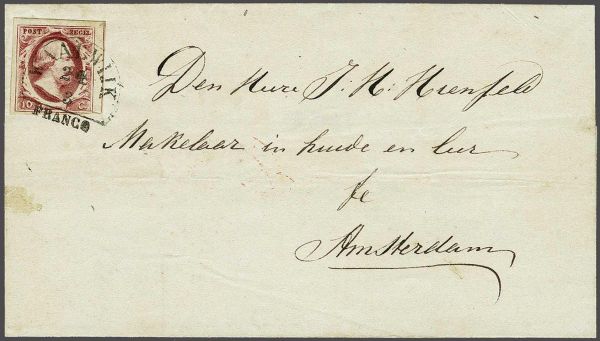 POST ZEGEL
WAALWIJK
24
3
FRANCO
10 C
Den Heere J: H: Hienfeld
Makelaar in huide en leer
te
Amsterdam